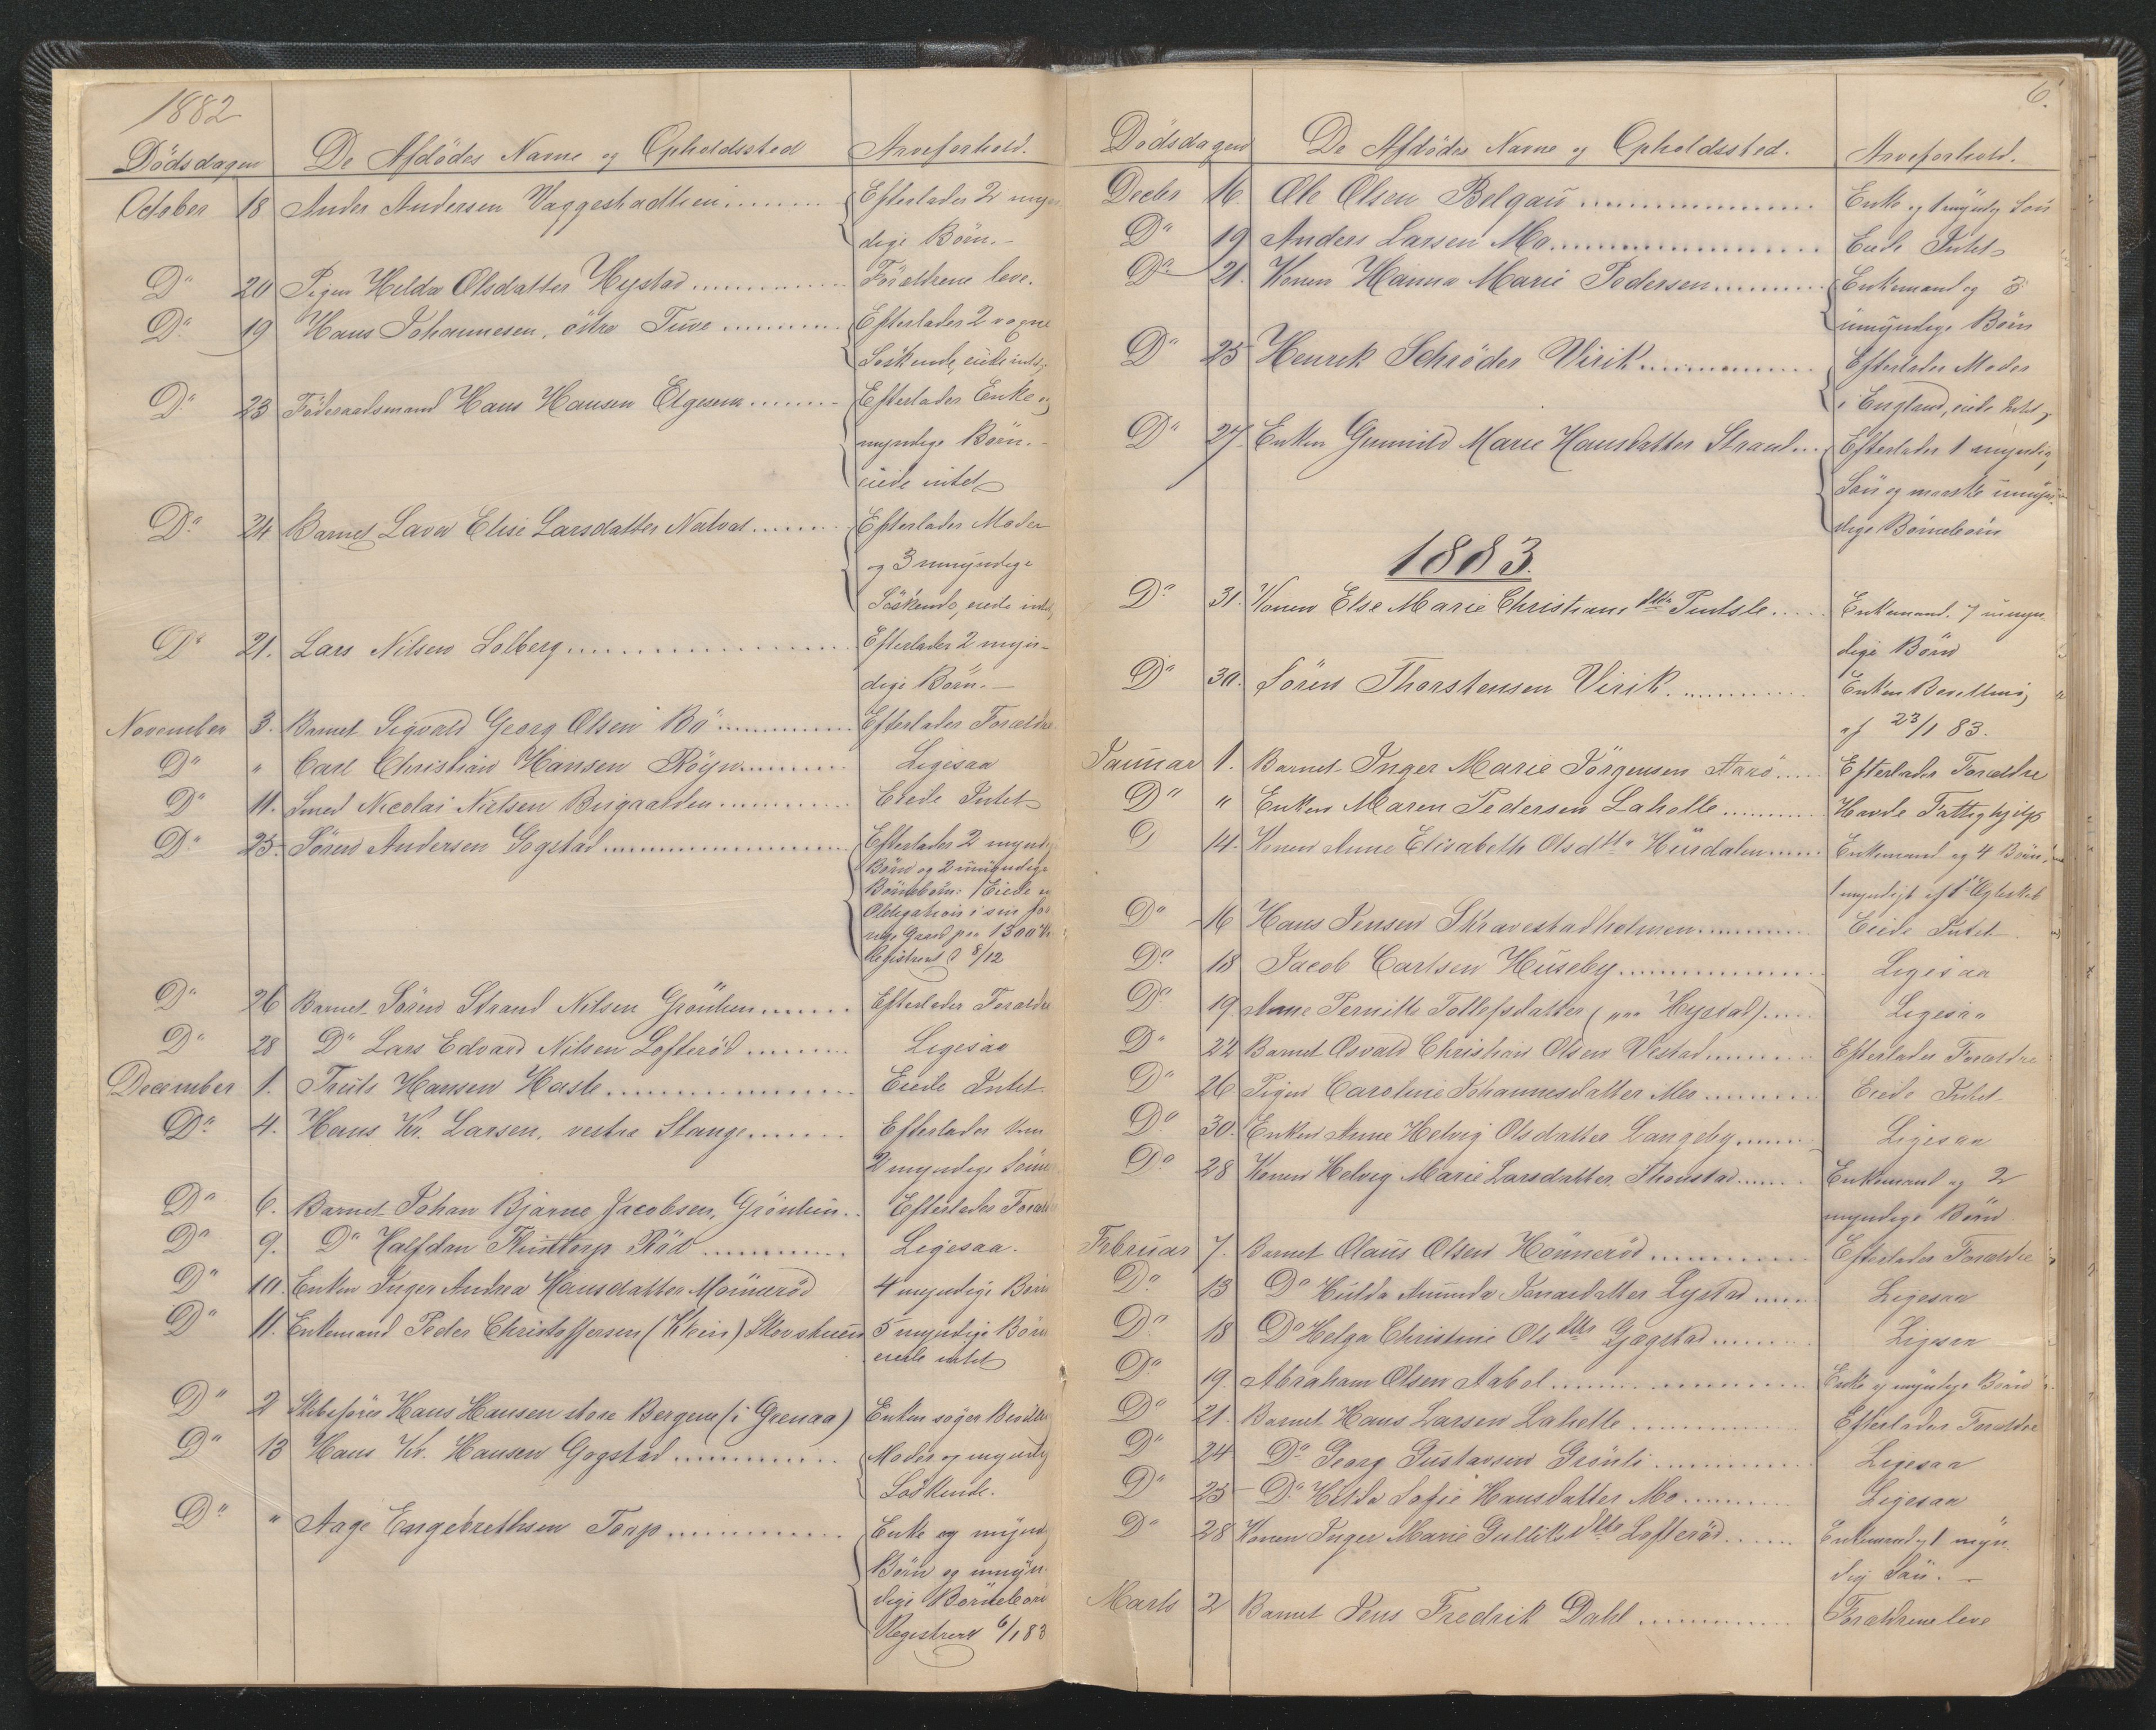 1882
Dödsdagen De Afdödes Navne og Opholdssted Arveforhold.
October 18 Anders Andersen Vaggestadtein Efterlader 2 myn
dige Börn. –
Do 20 Pigen Helda Olsdatter Hystad Forældrene leve.
Do 19 Hans Johannesen, östre Tuve Efterlader 2 vogne
Söskende, eiede intet
Do 23 Föderaadsmand Hans Hansen Elgesem Efterlader Enke og
myndige Börn. –
eiede intet
Do 24 Barnet Lava Elise Larsdatter Natvat Efterlader Moder
og 3 umyndige
Söskende, eiede intet
Do 21. Lars Nilsen Solberg Efterlader 2 myn-
dige Börn. –
November 3. Barnet Sigvald Georg Olsen Bö Efterlader Forældre
Do " Carl Christian Hansen Röyn Ligesaa
Do 11. Smed Nicolai Nielsen Eiede Intet
Do 25 Sören Andersen Gogstad Efterlader 2 myndige
Börn og 2 umyndige
Börnebörn. Eiede
Obligation i sin for
rige Gaard paa 1300 Kr
Registreret 8/12
Do 26 Barnet Sören Strand Nilsen Grönlien Efterlader Forældre
Do 28 Do Lars Edvard Nilsen Lofteröd Ligesaa
December 1. Truls Hansen Hasle Eiede Intet
Do 4. Hans Kr. Larsen, vestre Stange Efterlader kun
2 myndige Sönner
Do 6. Barnet Johan Bjarne Jacobsen, Grönlien Efterlader Forældre
Do 9. Do Halfdan Röd Ligesaa.
Do 10. Enken Inger Andrea Hansdatter Mönneröd 4 myndige Börn
Do 11. Enkemand Peder Christoffersen (Klein) Skovstuen 5 myndige Börn
eiede intet
Do 2 Skibsförer Hans Hansen store Bergene (i Grenaa) Enken söger Bevilling
Do 13 Hans Kr. Hansen Gogstad Moder og myndig
Söskende.
Do " Aage Engebrethsen Torp Enke og mynd
Börn og umyn-
dige Börnebörn
Registreret 6/1 83
6.
Dödsdagen De Afdödes Navne og Opholdssted. Arveforhold.
Decbr 16. Ole Olsen Belgau Enke og 1 myndig Sön
Do 19 Anders Larsen Mo Eiede Intet
Do 21. Konen Hanna Marie Pedersen Enkemand og 3
umyndige Börn
Do 25 Henrik Schröder Virik Efterlader Moder
i England, eiede Intet
Do 27 Enken Gunnild Marie Hansdatter Strand Efterlader 1 myndig
Sön og umyn-
dige Börnebörn
1883.
Do 31. Konen Else Marie Christians dtr Enkemand. 7 umyn
dige Börn
Do 30. Sören Thorstensen Virik Enken Bevilling
af 23/1 83.
Januar 1. Barnet Inger Marie Jörgensen Aarö Efterlader Forældre
Do " Enken Maren Pedersen Laholle Havde Fattighjelp
Do 14. Konen Anne Elisabeth Olsdtr Hürdalen Enkemand og 4 Börn
1 myndigt af 1ste Egteskab
Do 16 Hans Jensen Skravestadholmen Eiede Intet
Do 18 Jacob Carlsen Huseby Ligesaa
Do 19 Anne Pernille Tollefsdatter (paa Hystad) Ligesaa
Do 22 Barnet Osvald Christian Olsen Vestad Efterlader Forældre
Do 26 Pigen Caroline Johannesdatter Mo Eiede Intet
Do 30. Enken Anne Helvig Olsdatter Langeby Ligesaa
Do 28 Konen Helvig Marie Larsdatter Thorstad Enkemand og 2
myndige Börn
Februar 7. Barnet Olaus Olsen Hönneröd Efterlader Forældre
Do 13 Do Hulda Amunda Jonasdatter Lystad Ligesaa
Do 18 Do Helga Christine Ols dtr Gogstad Ligesaa
Do 19. Abraham Olsen Aabol Enke og myndige Börn
Do 21. Barnet Hans Larsen Laholle Efterlader Forældre
Do 24 Do Georg Gustavsen Grönli Ligesaa
Do 25 Do Hilda Sofie Hansdatter Mo Ligesaa
Do 28 Konen Inger Marie Gulliksdtr Lofteröd Enkemand og 1 myn
dig Sön. –
Marts 2 Barnet Jens Fredrik Dahl Forældrene leve